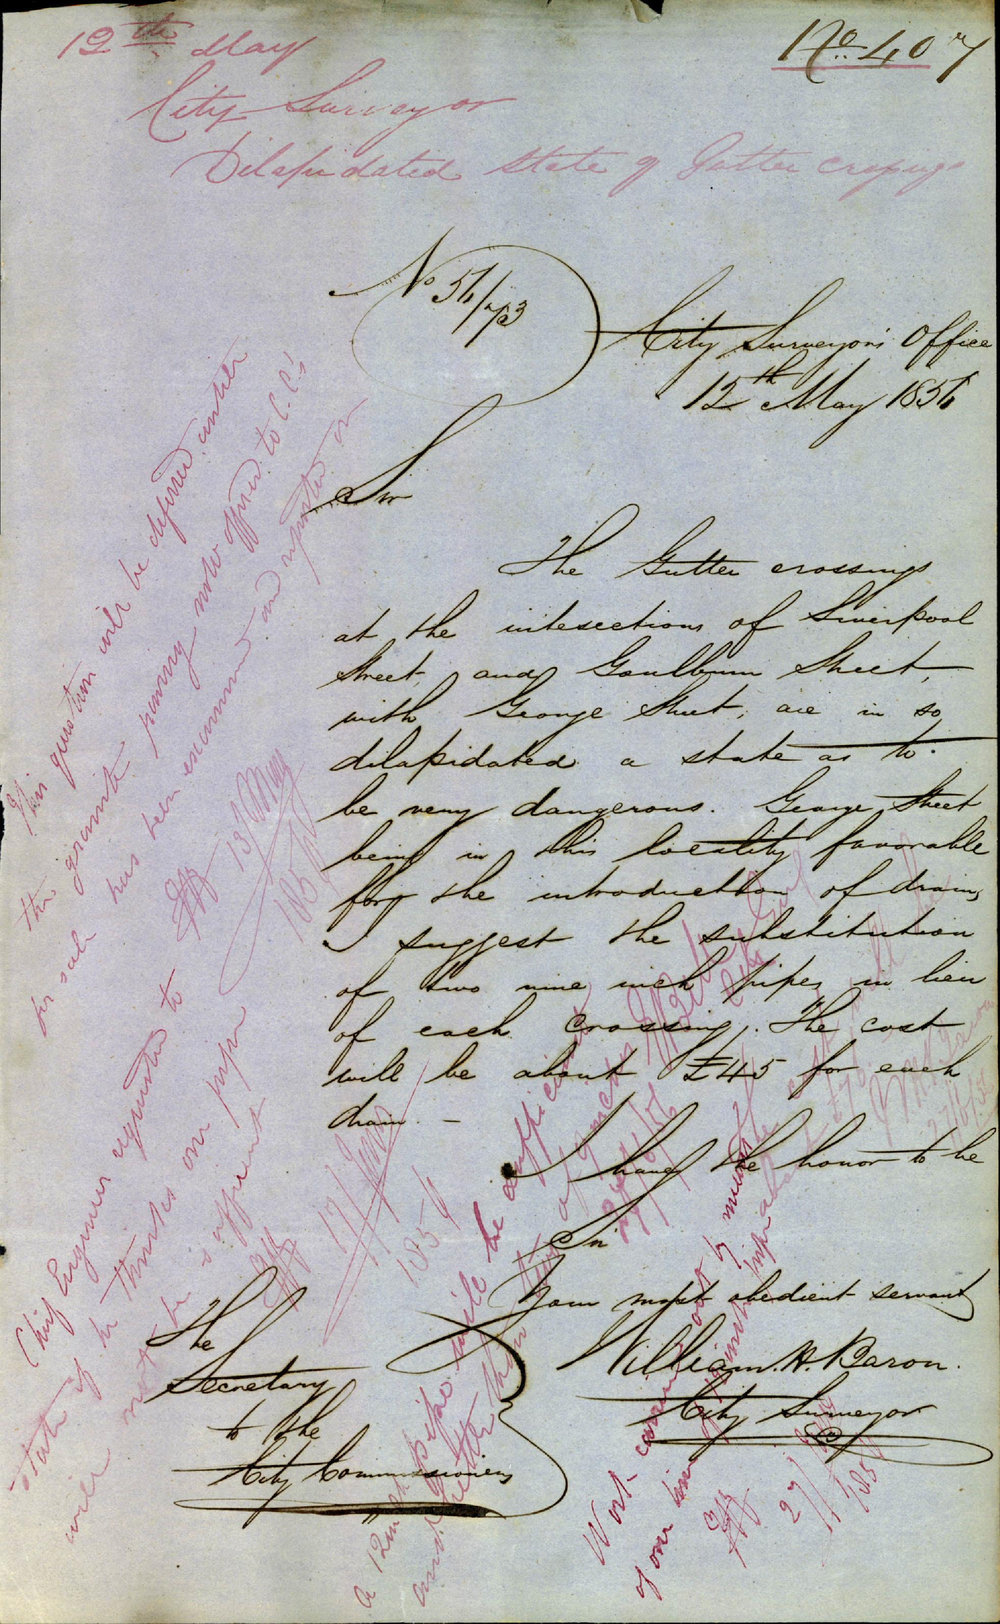 12th May
No. 407
City Surveyor
Dilapidated State of Gutter crossings
No 56/73
City Surveyor's Office
12th May 1856
Sir
The Gutter crossings
at the intesections of Liverpool
Street, and Goulburn Street,
with George Street, are in so
dilapidated a state as to
be very dangerous. George Street
being in this locality favorable
for the introduction of drains,
I suggest the substitution
of two nine inch pipes in lieu
of each crossing. The cost
will be about £45 for each
drain. —
I have the honor to be
Sir
Your most obedient servant
William. H. Baron.
City Surveyor
The
Secretary
to the
City Commissioners
This question will be deferred until
the granite paving now offered to C.C.'s
for sale has been examined and reported on
13/May
1856
Chief Engineer requested to
state if he thinks one pipe
will not be sufficient
17/June
1856
a 12 inch pipe will be sufficient
and better than two of 9 inches
Work carried out by means
of one
27